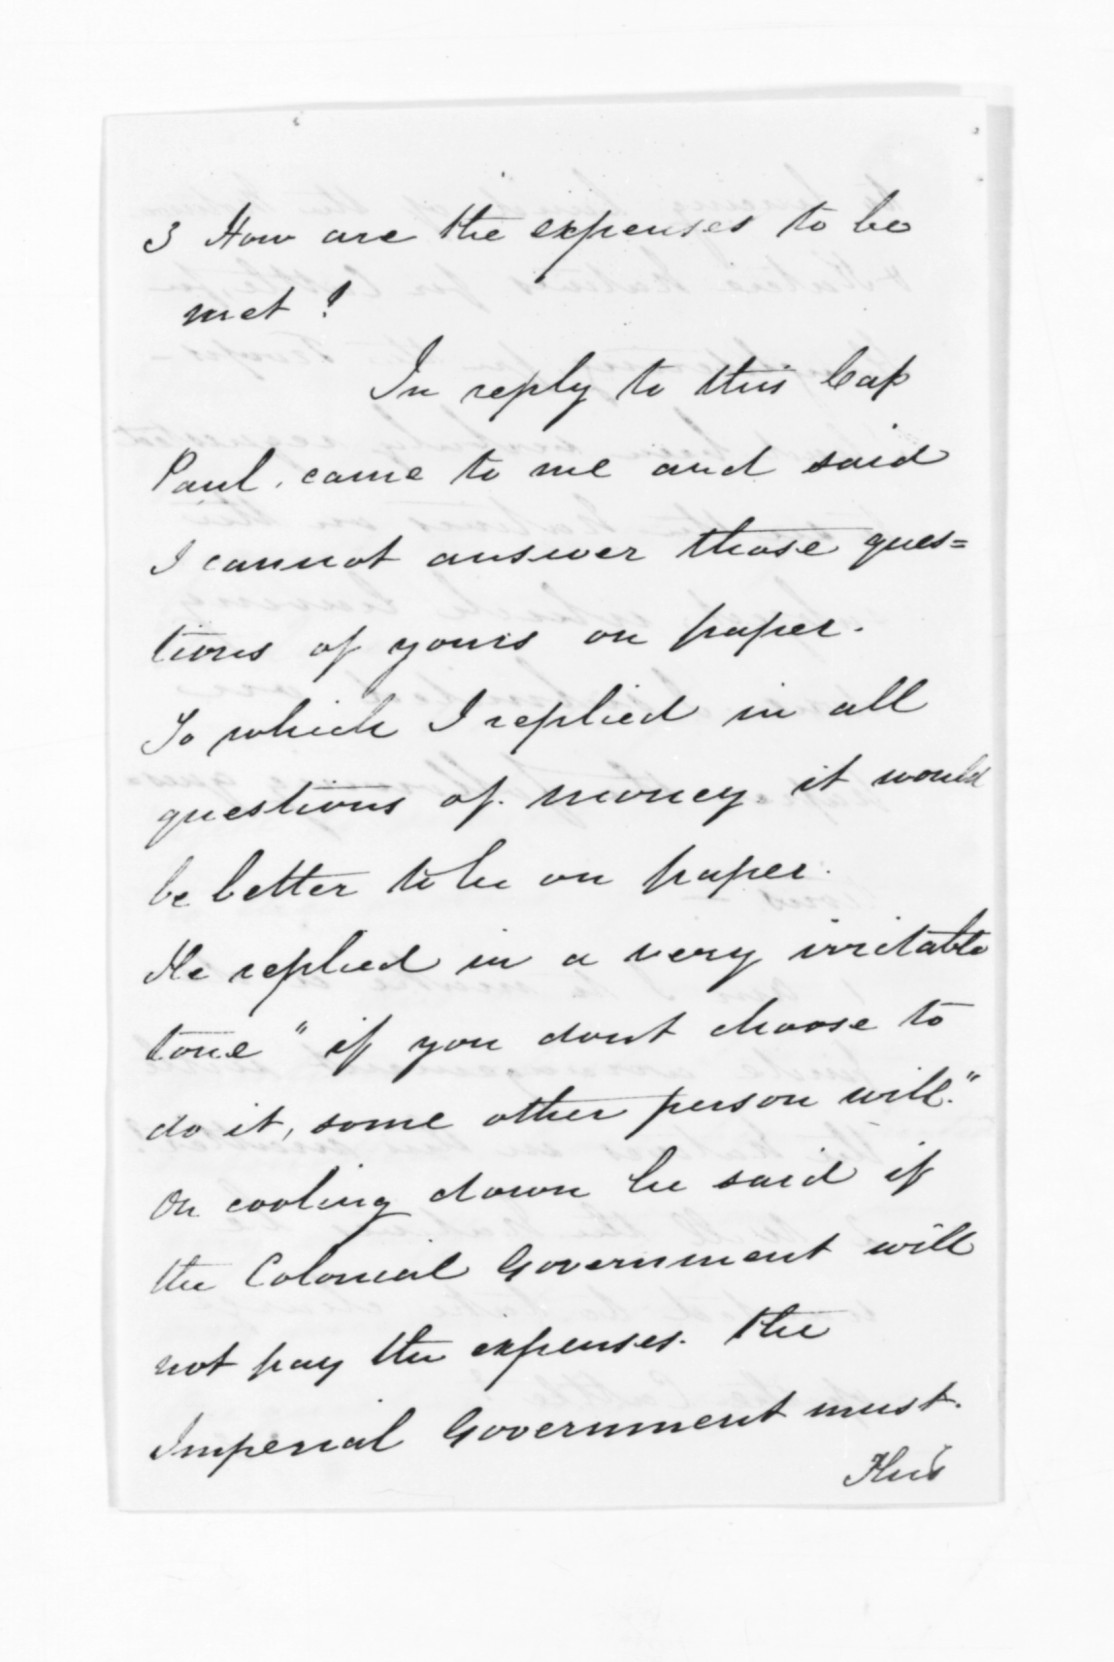 3 How are the expenses to be
met ?
In reply to this Cap
Paul, came to me and said
I cannot answer those ques=
tions of yours on paper.
To which I replied in all
questions of money it would
be better to be on paper.
He replied in a very irritable
tone "if you dont choose to
do it, some other person will."
On cooling down he said if
the Colonial Government will
not pay the expenses. the
Imperial Government must.
This